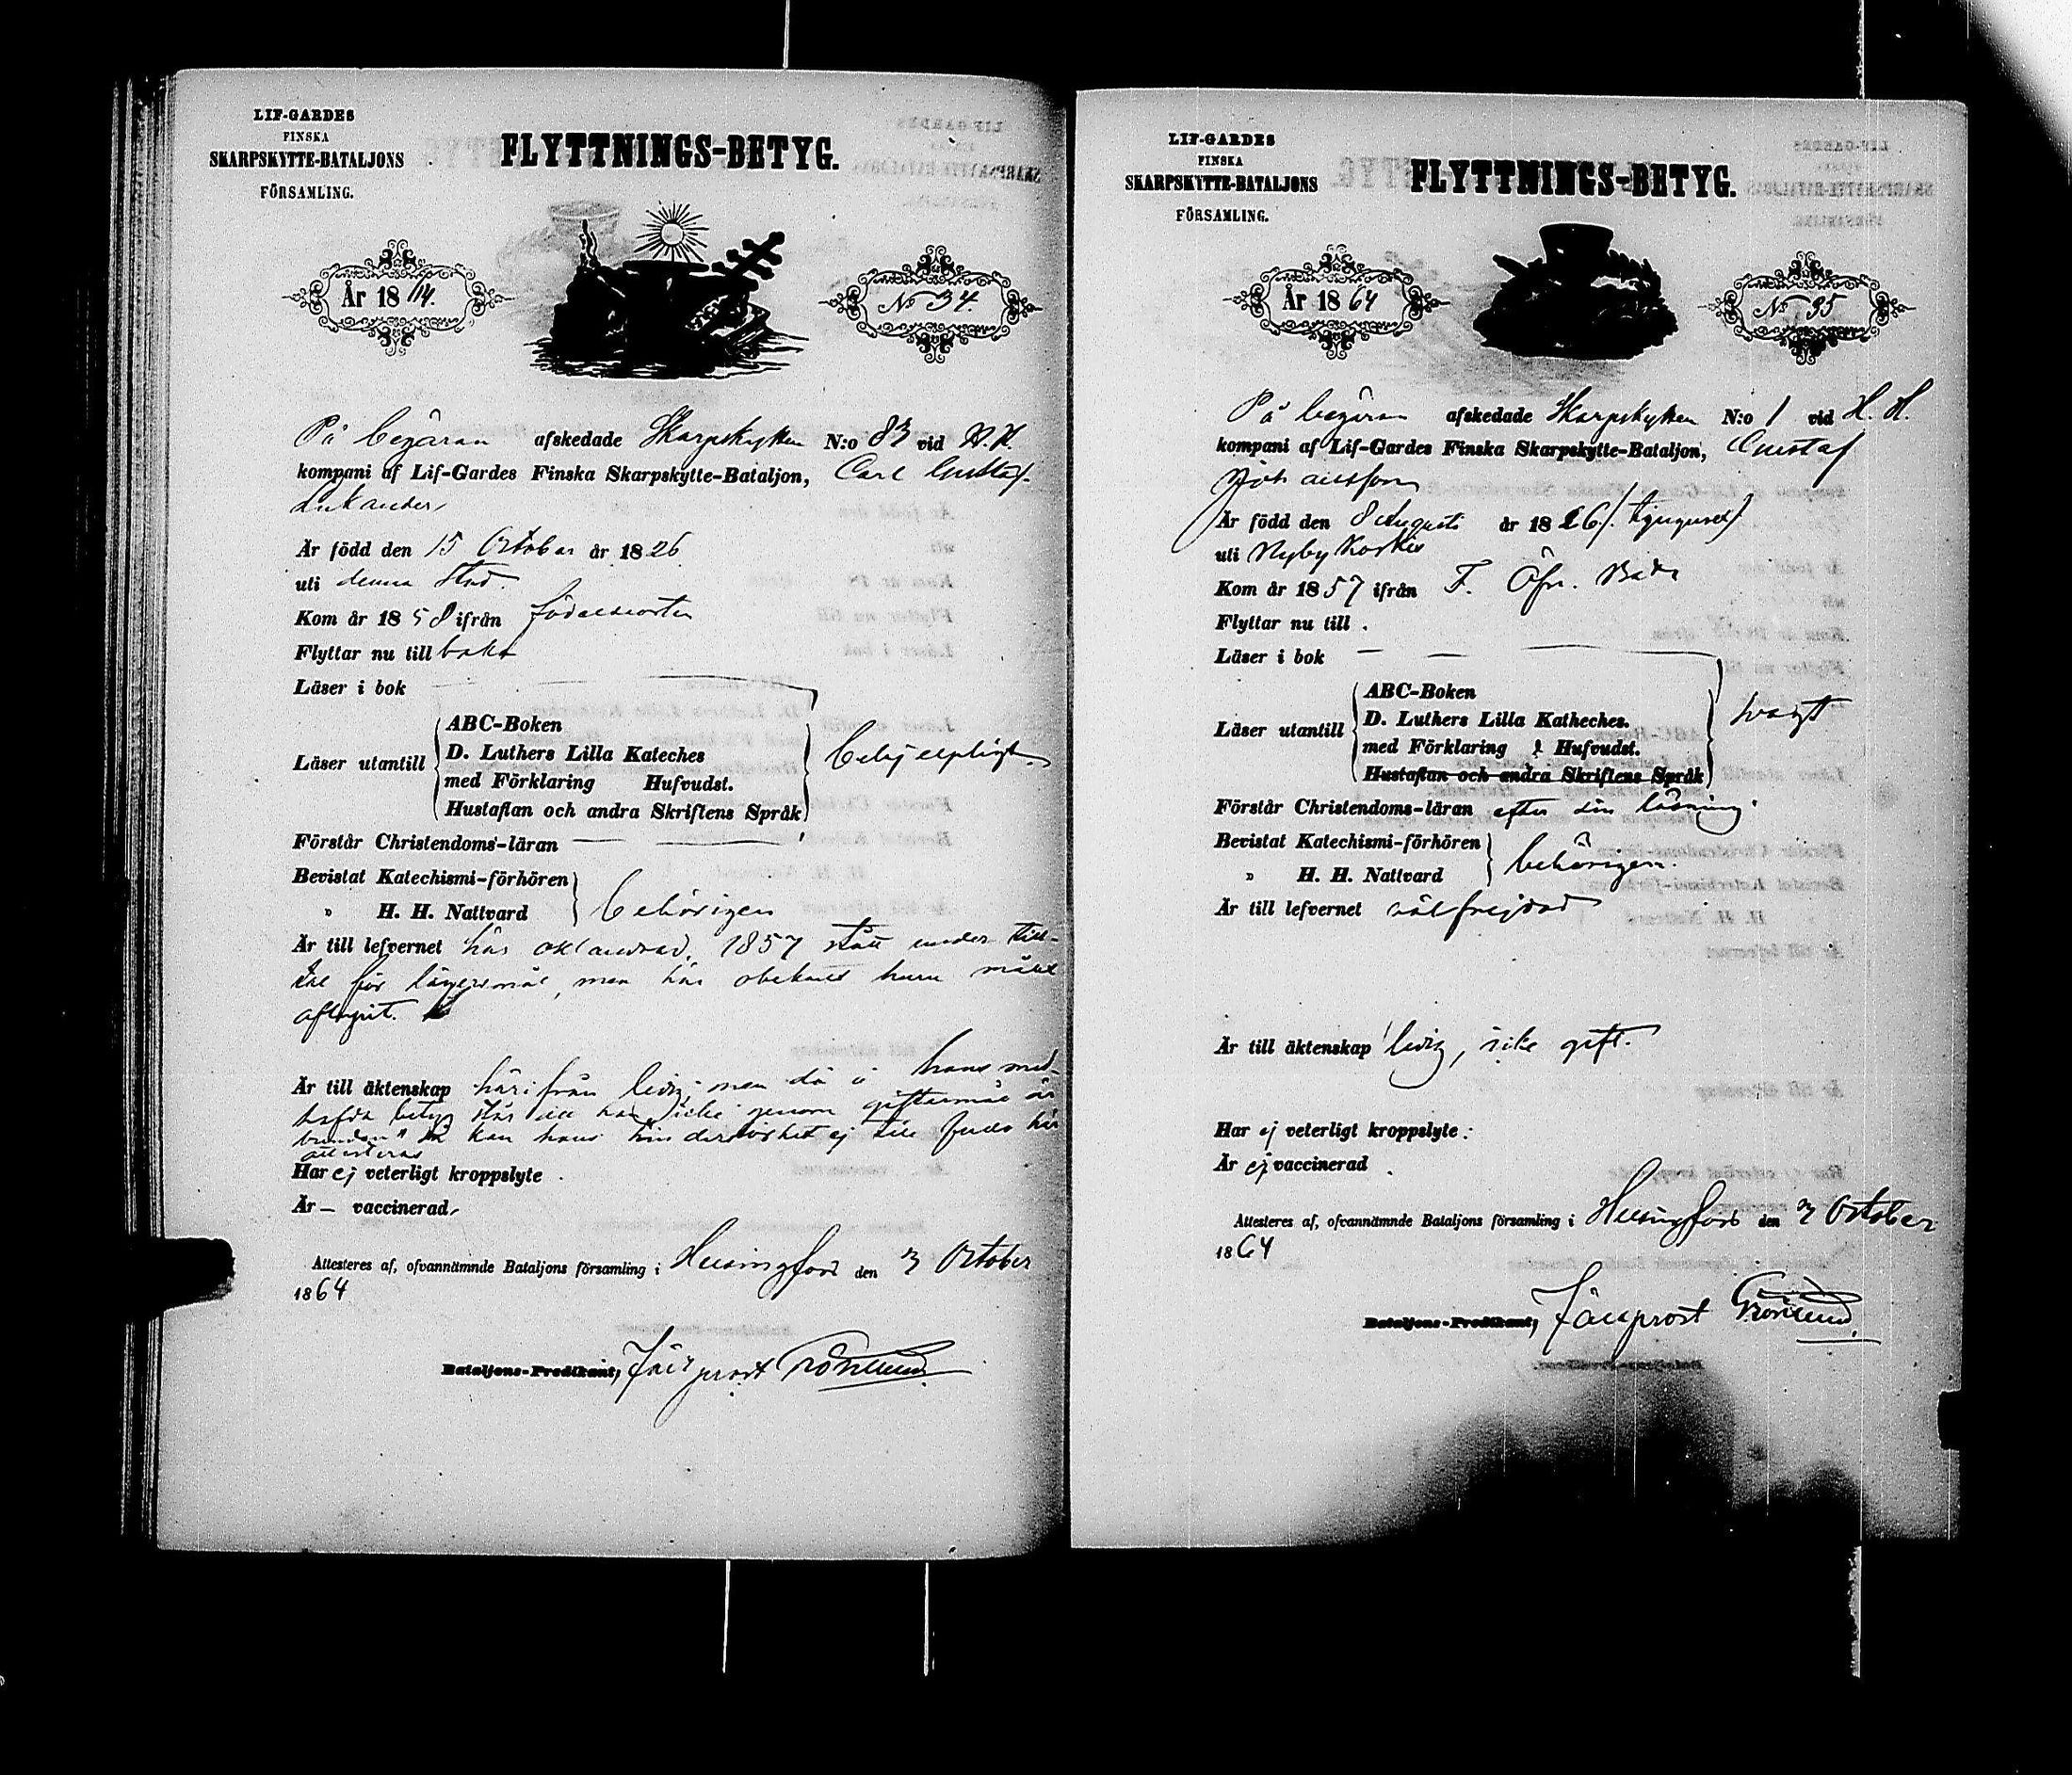 LIF-GARDES
FINSKA
SKARPSKYTTE-BATALJONS
FÖRSAMLING.
FLYTTNINGS-BETYG.
År 1864.
No 34.
På begäran afskedade Skarpskytten N:o 83 vid
kompani af Lif-Gardes Finska Skarpskytte-Bataljon, Carl Gustaf
Lukander,
Är född den 15 October år 1826
uti denna stad.
Kom år 1858 ifrån födelseorten
Flyttar nu till baka
Läser i bok
Läser utantill
ABC-Boken
D. Luthers Lilla Kateches
med Förklaring Hufvudst.
Hustaflan och andra Skriftens Språk
behjelpligt
Förstår Christendoms-läran
Bevistat Katechismi-förhören
" H. H. Nattvard
behörigen
Är till lefvernet här oklandrad, 1857 stått under till-
tal för lägersmål, men här obekant huru målet
aflupit.
Är till äktenskap härifrån ledig; men då i hans med-
hafda betyg står att han icke genom giftermål är
bunden" så kan hans hinderslöshet ej till fullo här
attesteras
Har ej veterligt kroppslyte.
Är – vaccinerad,
Attesteres af, ofvannämnde Bataljons församling i Helsingfors den 3 October
1864
Bataljons-Predikant, Fältprost Grönlund.
LIF-GARDES
FINSKA
SKARPSKYTTE-BATALJONS
FÖRSAMLING.
FLYTTNINGS-BETYG.
År 1864
No 35
På begäran afskedade Skarpskytten N:o 1 vid
kompani af Lif-Gardes Finska Skarpskytte-Bataljon, Gustaf
Johansson
Är född den 8 Augusti år 1826/. tjugusex/
uti Nyby Koskis
Kom år 1857 ifrån F. Öfn.
Flyttar nu till .
Läser i bok
Läser utantill
ABC-Boken
D. Luthers Lilla Katheches.
med Förklaring Hufvudst.
Hustaflan och andra Skriftens Språk
svagt
Förstår Christendoms-läran efter sin läsning.
Bevistat Katechismi-förhören
" H. H. Nattvard
behörigen.
Är till lefvernet välfrejdad
Är till äktenskap ledig, icke gift.
Har ej veterligt kroppslyte.
Är ej vaccinerad .
Attesteres af, ofvannämnde Bataljons församling i Helsingfors den 3 October
1864
Bataljons-Predikant, Fältprost Grönlund.